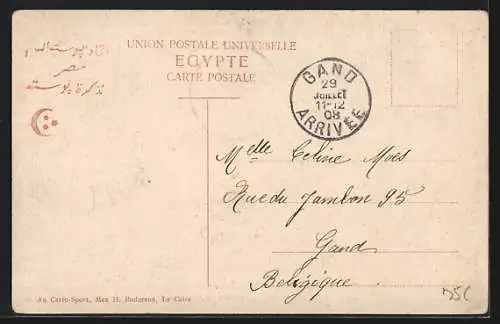 UNION POSTALE UNIVERSELLE
EGYPTE
CARTE POSTALE
اتحاد البوستة العام
مصر
تذكرة بوسته
GAND
29
JUILLET
11-12
08
ARRIVÉE
Melle Celine Moes
Rue du Jambon 95
Gand
Belgique.
Au Carto-Sport, Max H. Rudmann, Le Caire